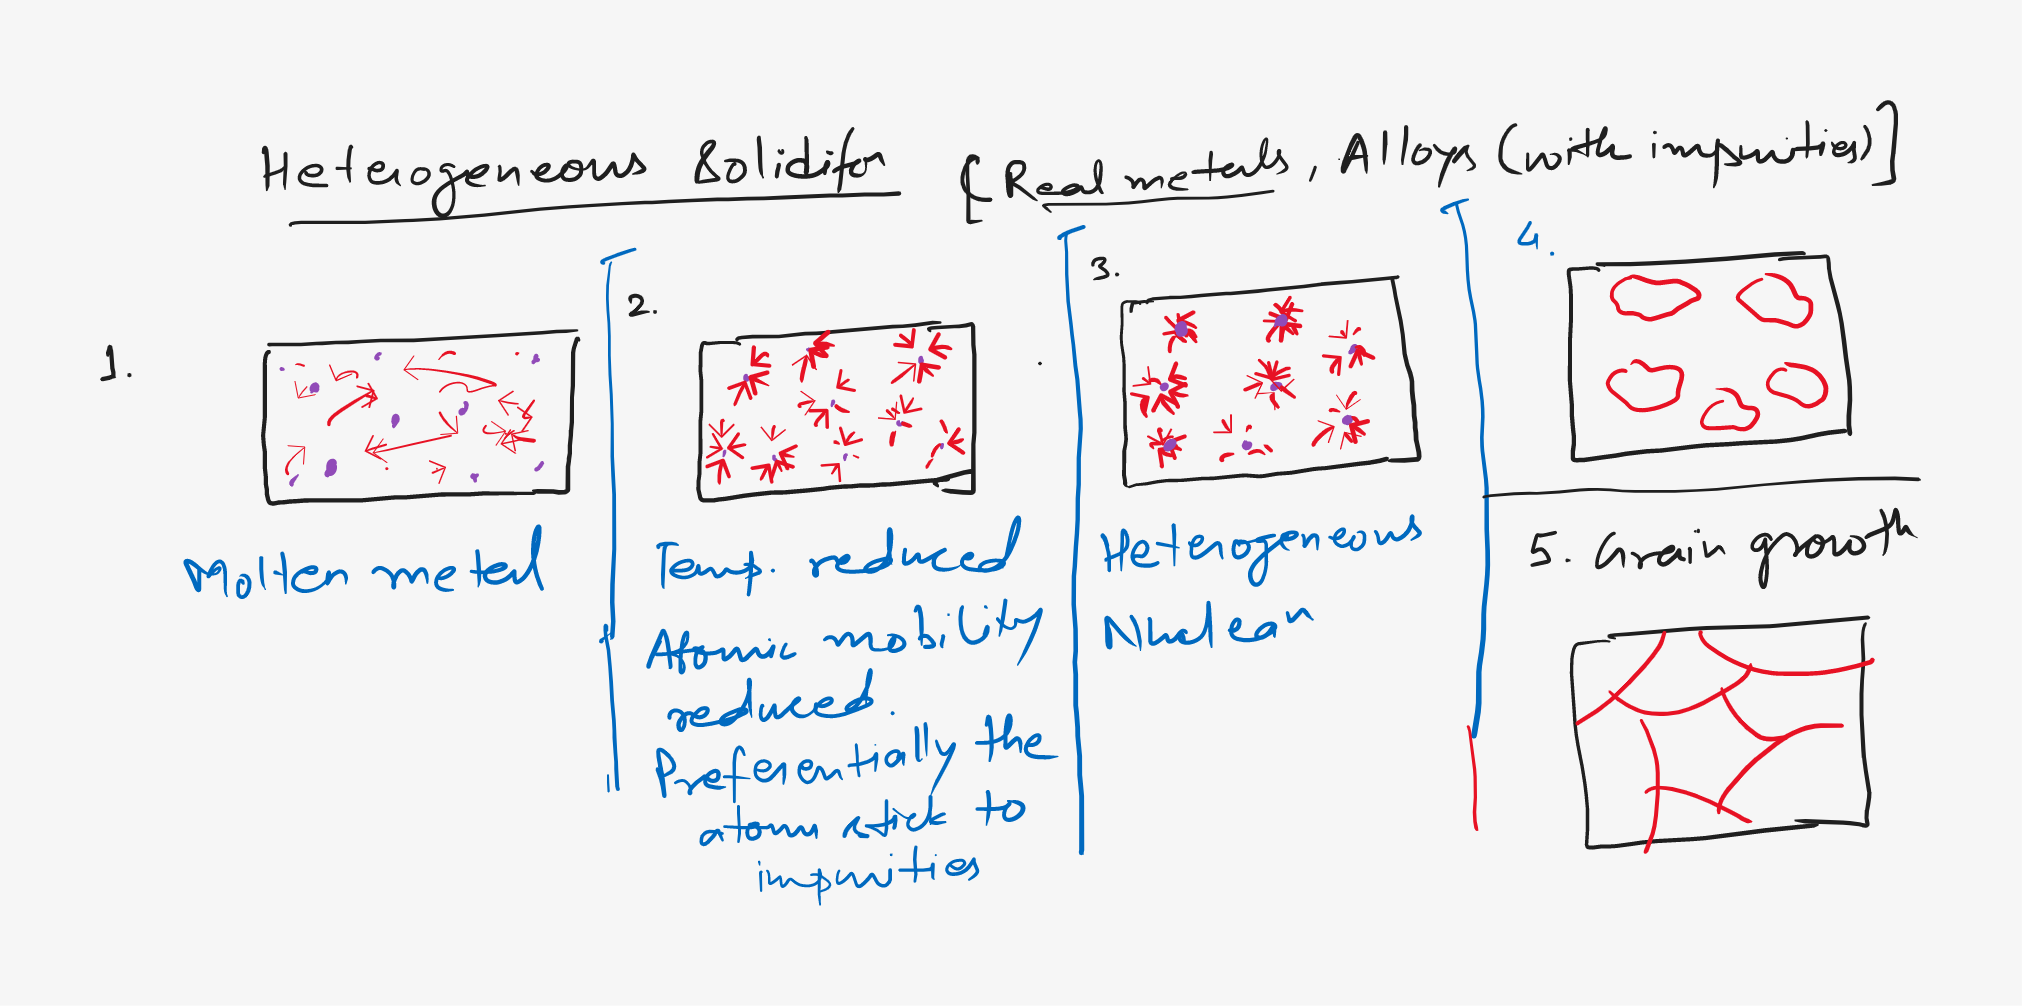 Heterogeneous Solidifn [Real metals, Alloys (with impurities)]
1.
Molten metal
2.
Temp. reduced
Atomic mobility
reduced.
Preferentially the
atoms stick to
impurities
3.
Heterogeneous
4.
5. Grain growth